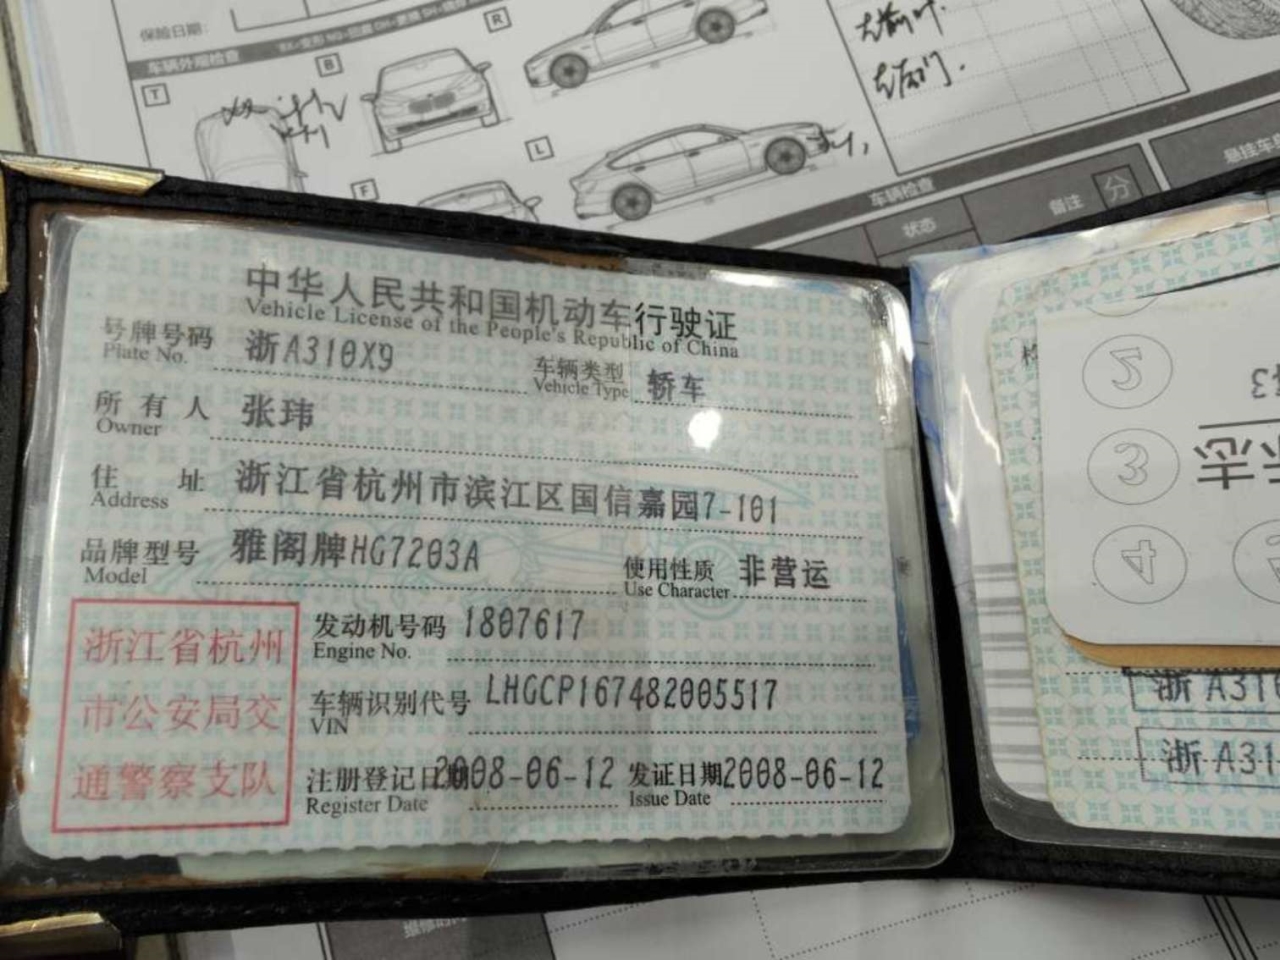 保险日期:
车辆外观检查
T
B
R
L
F
左前叶.
左后门.
车辆检查
状态
备注
分
悬挂车
中华人民共和国机动车行驶证
Vehicle License of the People's Republic of China
号牌号码 浙A310X9 车辆类型 轿车
Plate No. Vehicle Type
所有人 张玮
Owner
住址 浙江省杭州市滨江区国信嘉园7-101
Address
品牌型号 雅阁牌HG7203A 使用性质 非营运
Model Use Character
浙江省杭州
市公安局交
通警察支队
发动机号码 1807617
Engine No.
车辆识别代号 LHGCP167482005517
VIN
注册登记日期 2008-06-12 发证日期 2008-06-12
Register Date Issue Date
2
3
4
志
浙A31
浙A31